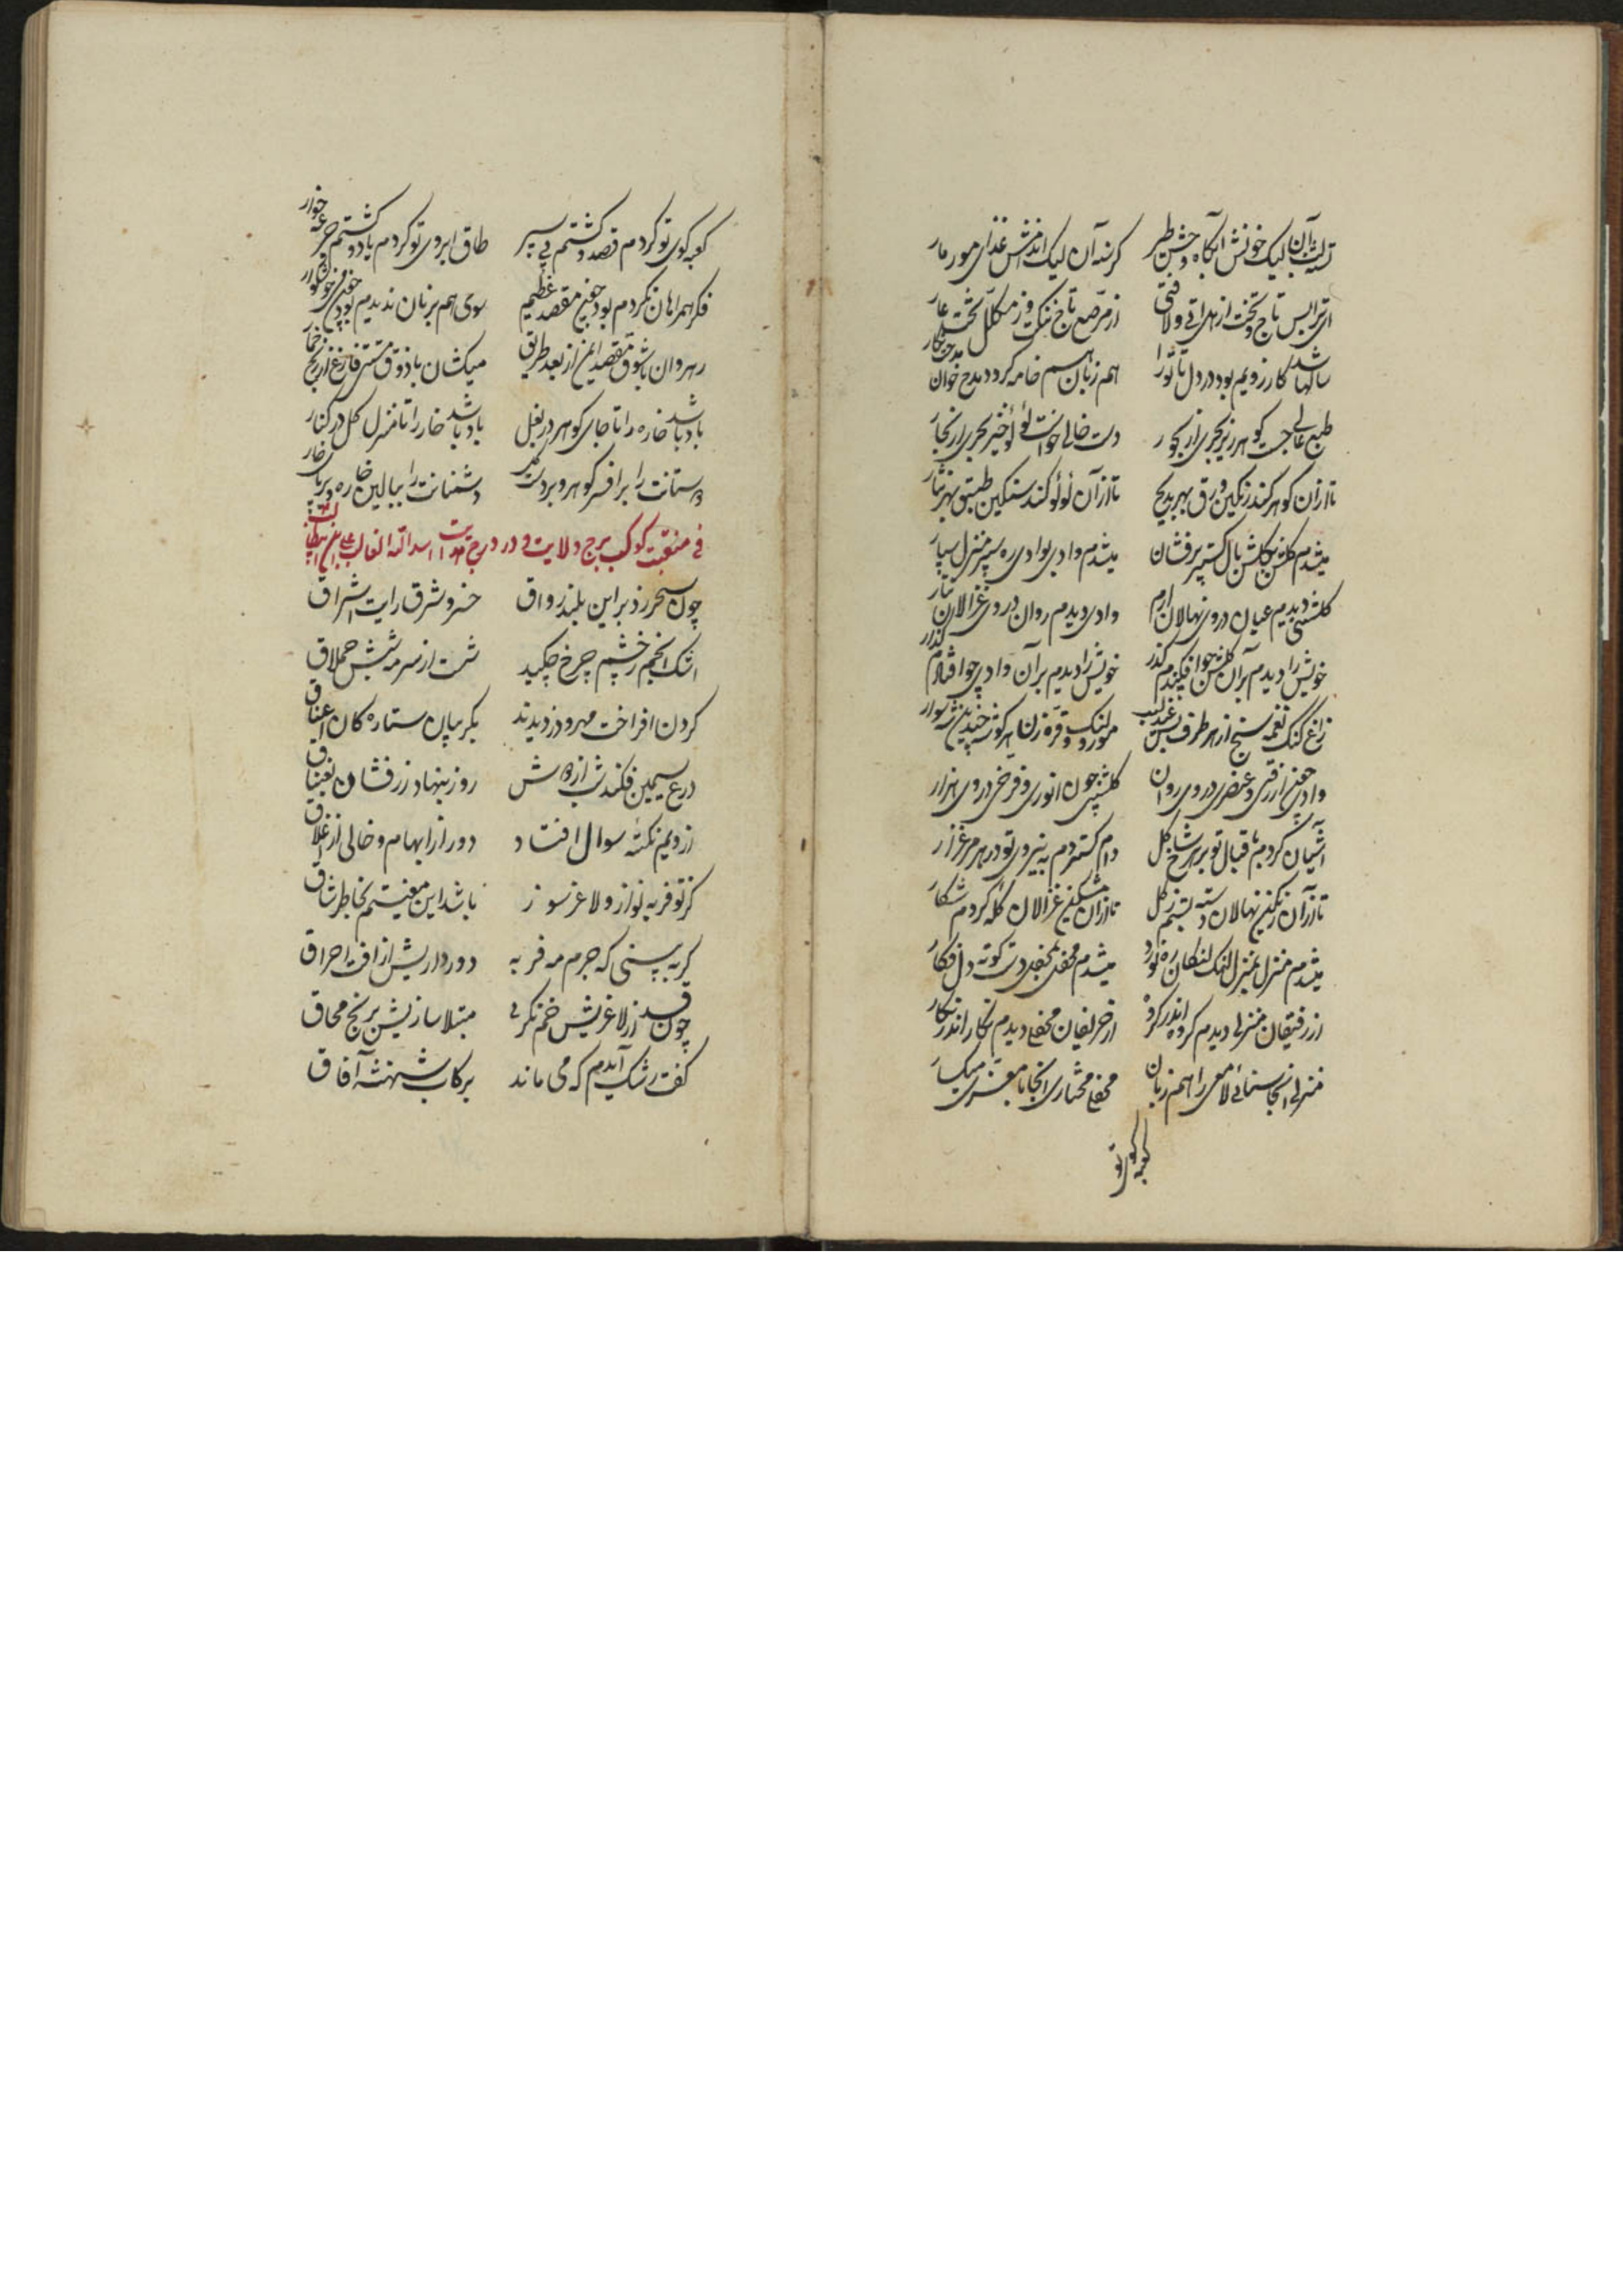 تشنه لب آن لیک خونش آبگاه وحش و طیر گرسنه آن لیک اندامش غذای مور و مار
ای ترا بس تاج و تخت از هل اتی و لافتی از مرصع تاج ننگ و ز مکلل تخت عار
سالها شد کارزویم بود در دل تا ترا همزبان سم خامه گردد مدح خوان
طبع عالی جست گوهر ریز بحری از بحور دست خالی خواست لؤلؤ خیز بحری از بحار
تا از آن گوهر کند رنگین ورق بهر مدیح تا از آن لؤلؤ کند سنگین طبق بهر نثار
میشدم گلشن بگلشن بال گستر پر فشان میشدم وادی بوادی ره سپر منزل سپار
گلشنی دیدم عیان در وی نهالان ارم وادی دیدم روان در وی غزالان تتار
خویش را دیدم بر آن گلشن چو افکندم گذر خویش را دیدم بر آن وادی چو افتادم گذار
زاغ گنگ نغمه سنج از هر طرف بس عندلیب مور لنگ و ره نورد از هر گوشه چندین شهسوار
وادیی چون ازرقی و عنصری در وی روان گلشنی چون انوری و فرخی در وی هزار
آشیان کردم باقبال تو بر هر شاخ گل دام گستردم به نیروی تو در هر مرغزار
تا از آن رنگین نهالان دسته بستم ز گل تا از آن مشکین غزالان گله کردم شکار
میشدم منزل بمنزل لنگ لنگان ره نورد میشدم محفل بمحفل دست کوته دل فکار
از رفیقان منزلی دیدم گروه اندر گروه از حریفان محفلی دیدم نگار اندر نگار
منزلی آنجا سنائی لامعی را همزبان محفلی مختاری آنجا با معزی میگسار
کعبه کوی تو
کعبه کوی تو کردم قصد و گشتم پی سپر طاق ابروی تو کردم یاد و گشتم جرعه خوار
فکر همراهان نکردم بود چون مقصد عظیم سوی همبزمان ندیدم بود چون می خوشگوار
رهروان با شوق مقصد ایمن از بعد طریق میکشان با ذوق مستی فارغ از رنج خمار
باد باشد خاره را تا جای گوهر در بغل باد باشد خار را تا منزل گل در کنار
دوستانت را بر افسر گوهر و بر دست گل دشمنانت را ببالین خاره و بر پای خار
فی منقبت کوکب برج ولایت و در درج هدایت اسد الله الغالب علی بن ابیطالب
چون سحر زد بر این بلند رواق خسرو شرق رایت اشراق
اشک انجم ز چشم چرخ چکید شست از سرمه شبش حملاق
گردن افراخت مهر و دزدیدند یکریبان ستارگان اعناق
درع سیمین فکند شب از دوش روز بنهاد زرفشان بغتاق
از دبیم نکته سوال افتاد دور از ابهام و خالی از اغلاق
کز تو فربه نواز و لاغر سوز باشد این معنیم بخاطر شاق
که به بینی که جرم مه فربه دور داریش از آفت احراق
چون قد از لاغریش خم نگری مبتلا سازیش برنج محاق
گفت رشک آیدم که می ماند برکاب شهنشه آفاق